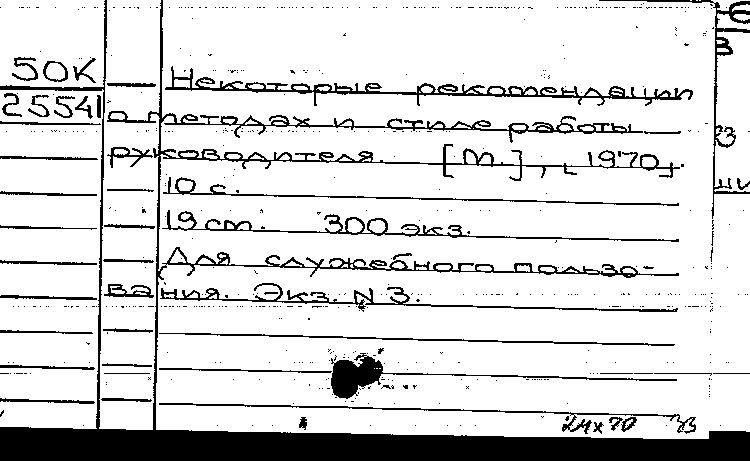 50К
25541
Некоторые рекомендации
о методах и стиле работы
руководителя. [М.], [1970].
10 с.
19 cm. 300 экз.
Для служебного пользо-
вания. Экз. N 3.